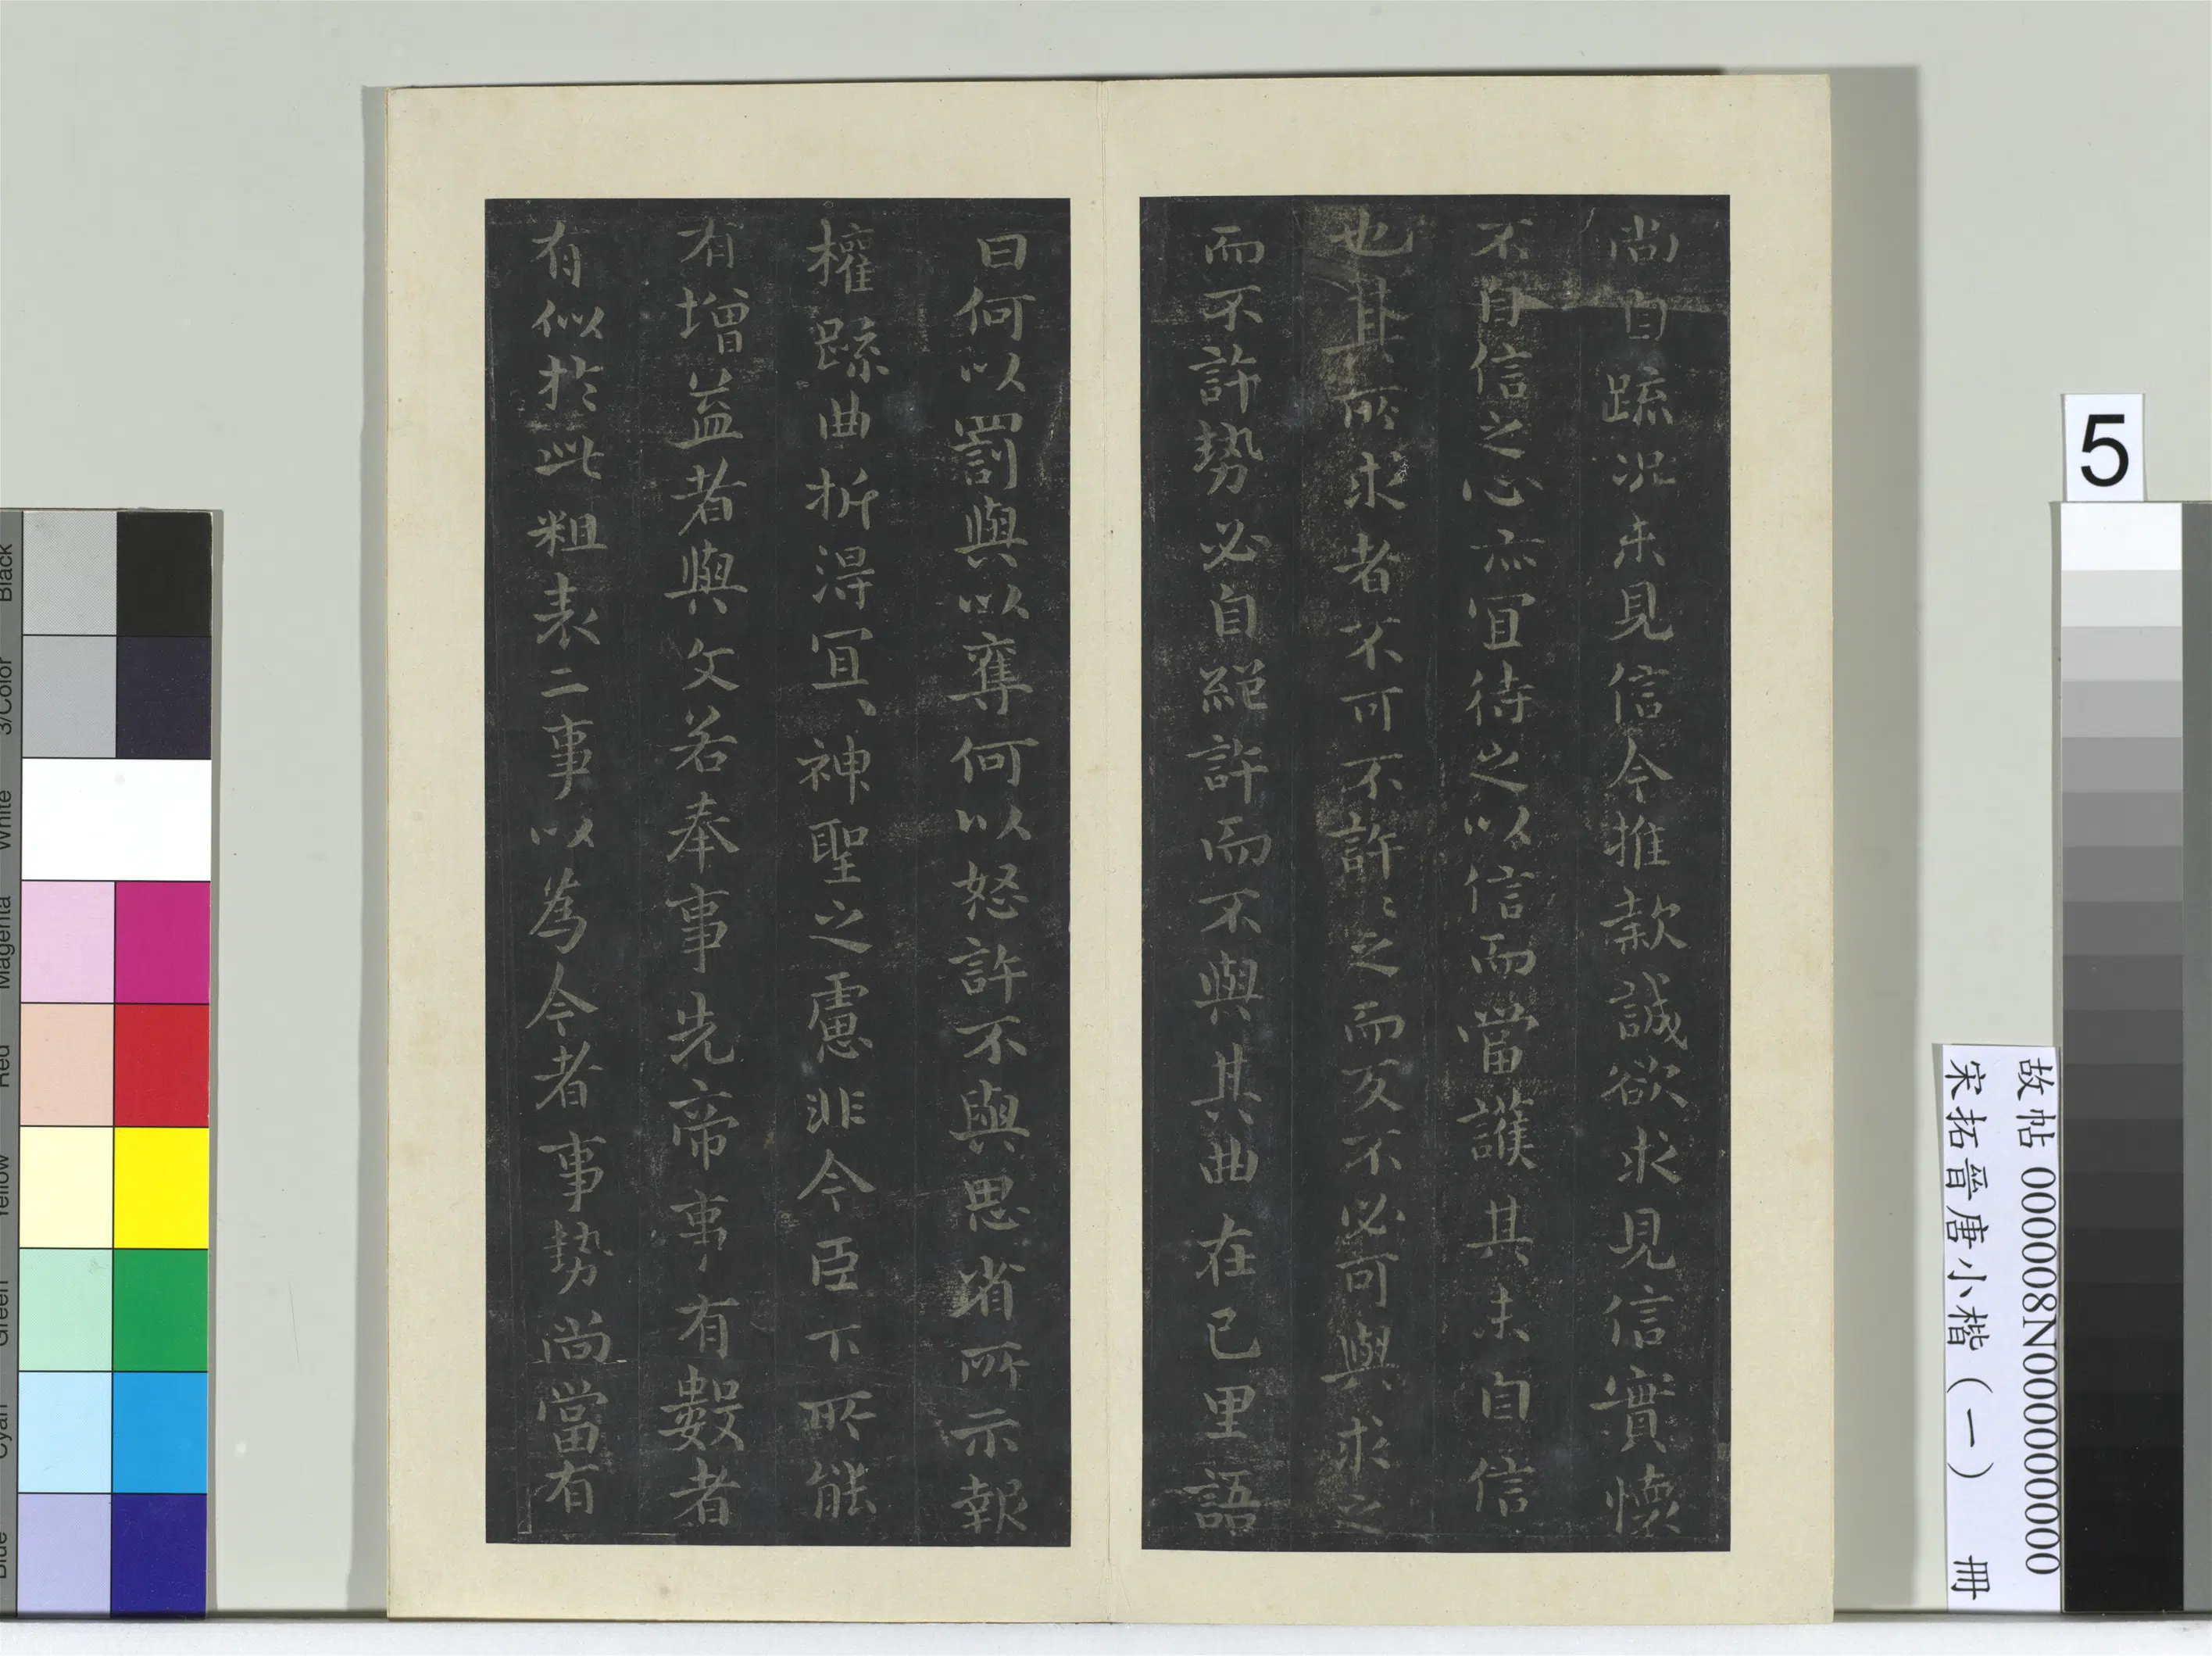 尚自疏況未見信今推款誠欲求見信實懷
不自信之心亦宜待之以信而當護其未自信
也其所求者不可不許許之而反不必可與求之
而不許勢必自絕許而不與其曲在己里語
曰何以罰與以奪何以怒許不與思省所示報
權疏曲折得宜宜神聖之慮非今臣下所能
有增益者與文若奉事先帝事有數者
有似於此粗表二事以為今者事勢尚當有
5
故帖 000008N000000000
宋拓晉唐小楷（一） 冊
Black
3/Color
White
Magenta
Red
Yellow
Green
Cyan
Blue